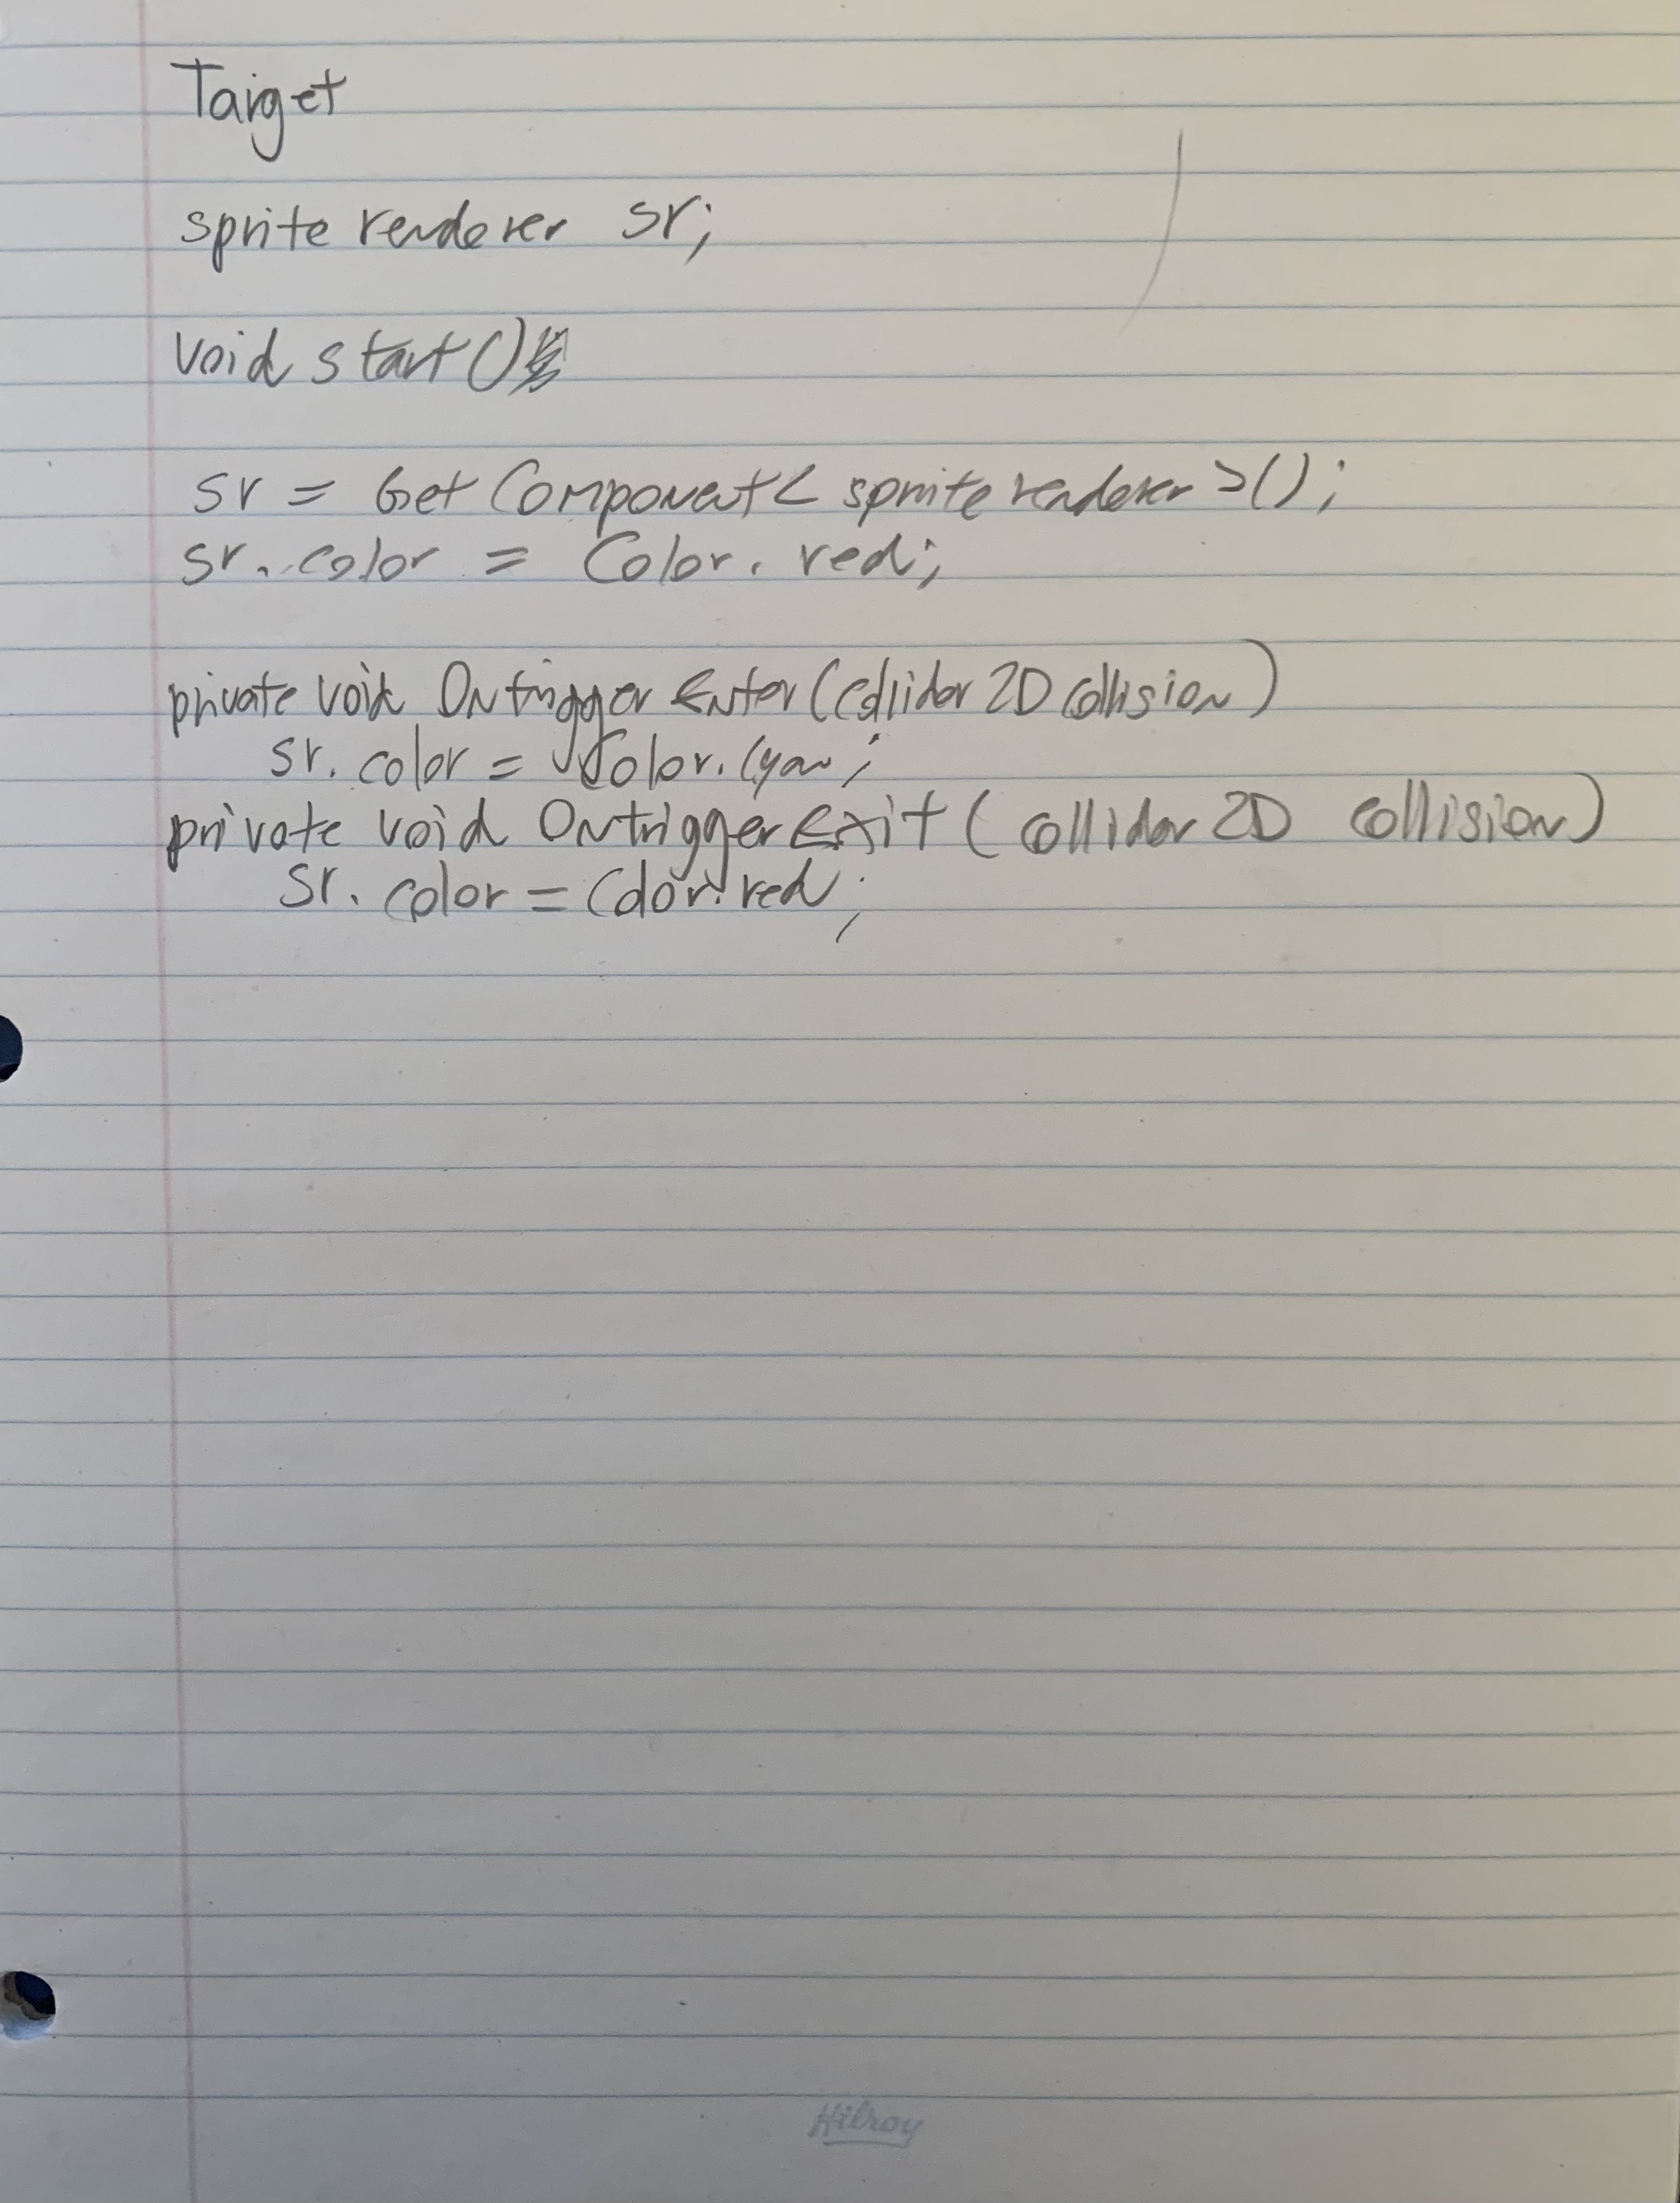 Target
sprite renderer sr;
void start()
sr = Get Component< sprite renderer >();
sr. color = Color. red;
private void Ontrigger Enter (Collider 2D Collision)
sr. color = Color. Cyan;
private void OntriggerExit ( Collider 2D Collision)
sr. color = Color. red;
Hilroy